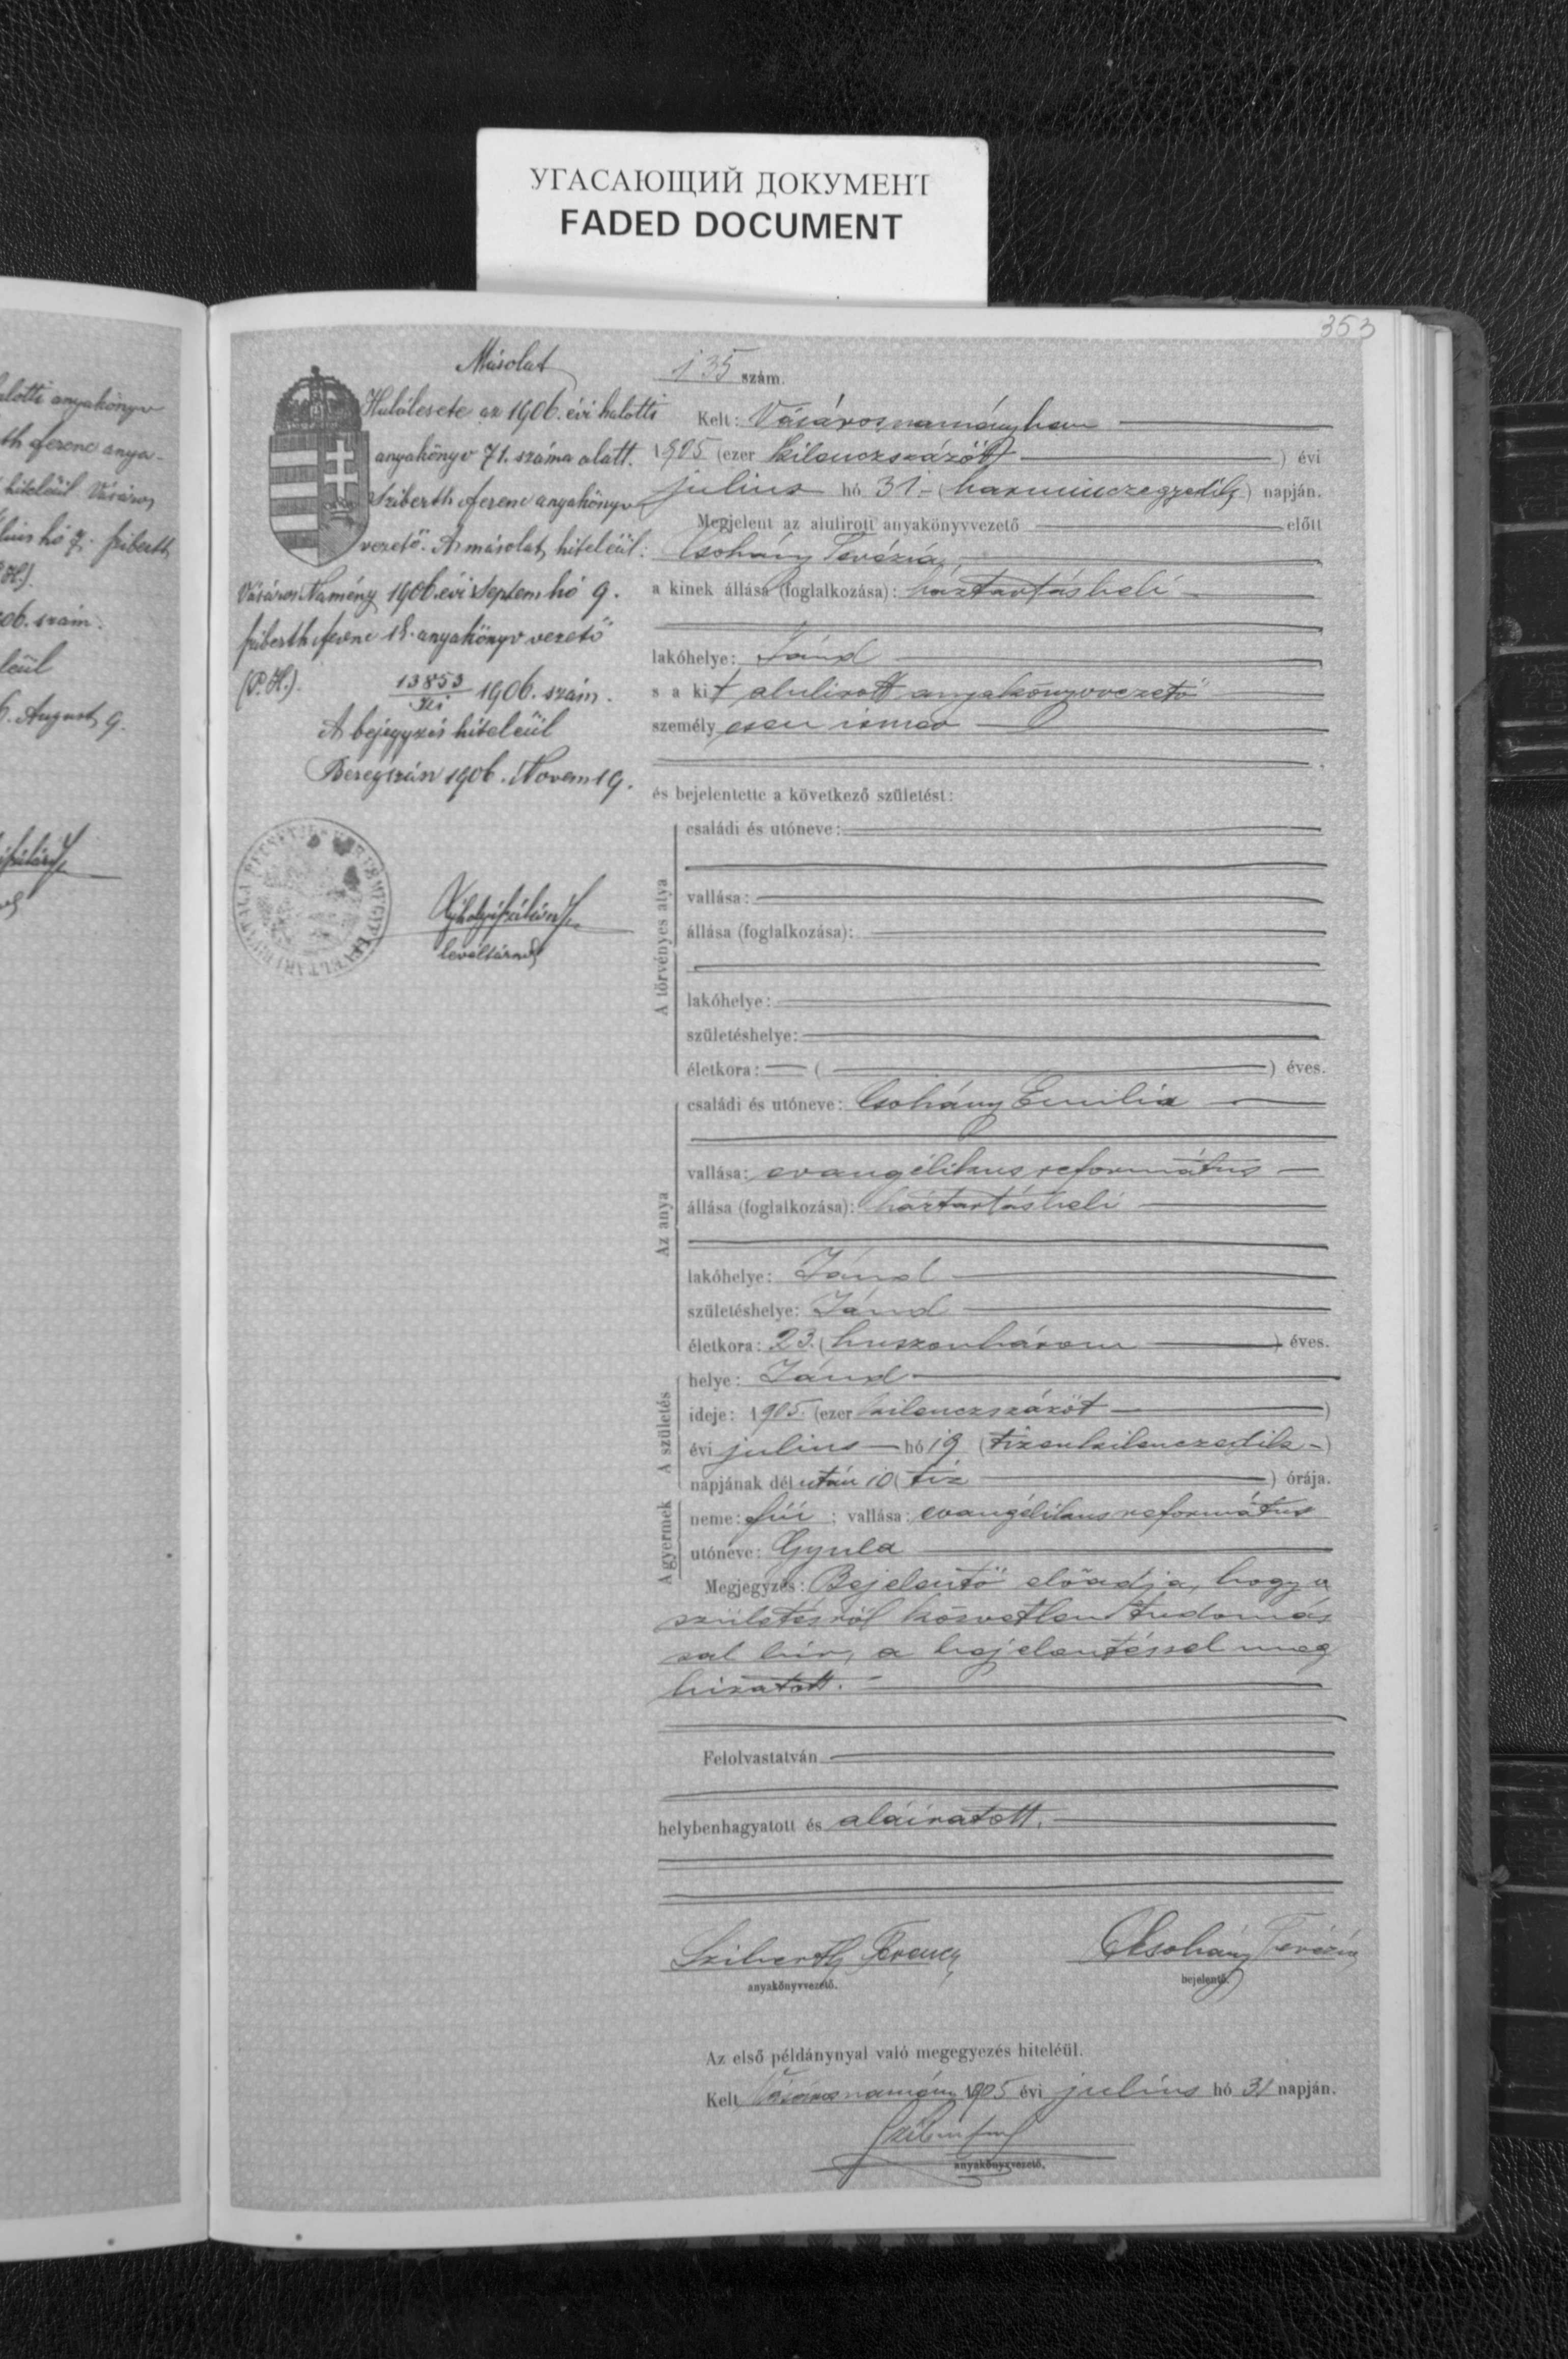 УГАСАЮЩИЙ ДОКУМЕНТ
FADED DOCUMENT
353
alotti anyakönyv
th Ferenc anya-
hiteléül Vásáros
hó 7. Sziberth
H.)
06. szám.
leül
6. August 9.
Másolat
Halálesete az 1906. évi halotti
anyakönyv 71. száma alatt.
Sziberth Ferenc anyakönyv
vezető. A másolat hiteléül:
Vásáros Namény 1906. évi Septem hó 9.
Sziberth Ferenc anyakönyvvezető
(P. H.).
13853
1906. szám.
A bejegyzés hiteléül
Beregszász 1906. Novem 19.
levéltárnok
135 szám.
Kelt: Vásárosnaményban
1905 (ezer kilenczszázöt) évi
julius hó 31. (harminczegyedik) napján.
Megjelent az alulirott anyakönyvvezető előtt
Csohány Terézia,
a kinek állása (foglalkozása): háztartásbeli
lakóhelye: Jánd
s a kit alulirott anyakönyvvezető
személyesen ismer
és bejelentette a következő születést:
A törvényes atya
családi és utóneve:
vallása:
állása (foglalkozása):
lakóhelye:
születéshelye:
életkora: ( ) éves.
Az anya
családi és utóneve: Csohány Emilia
vallása: evangélikus református
állása (foglalkozása): háztartásbeli
lakóhelye: Jánd
születéshelye: Jánd
életkora: 23. (huszonhárom) éves.
A születés
helye: Jánd
ideje: 1905. (ezer kilenczszázöt)
évi julius hó 19 (tizenkilenczedik)
napjának délután 10 (tiz) órája.
A gyermek
neme: fiú; vallása: evangélikus református
utóneve: Gyula
Megjegyzés: Bejelentő előadja, hogy a
születésről közvetlen tudomás
sal bir, a bejelentéssel meg
bizatott.
Felolvastatván
helybenhagyatott és aláiratott.
Sziberth Ferencz
anyakönyvvezető.
Csohány Terézia
bejelentő.
Az első példánynyal való megegyezés hiteléül.
Kelt Vásárosnamény 1905 évi julius hó 31 napján.
anyakönyvvezető.